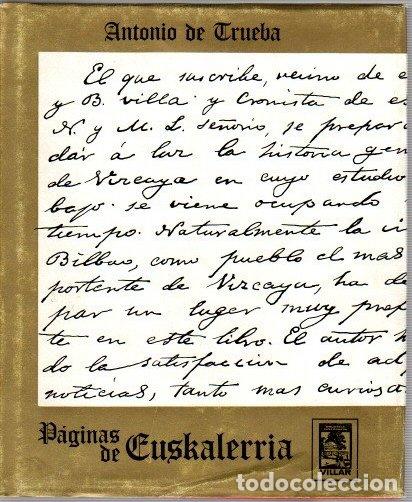 Antonio de Trueba
El que suscribe, vecino de e
y B. villa y Cronista de es
N. y M. L. Señorío, se prepara
dár á luz la historia gen
de Vizcaya en cuyo estudio
bajo se viene ocupando
tiempo. Naturalmente la in
Bilbao, como pueblo el mas
portente de Vizcaya, ha de
par un lugar muy pref
te en este libro. El autor h
do la satisfaccion de ad
noticias, tanto mas curiosa
Páginas
de Euskalerria
VILLAR
todocoleccion.net